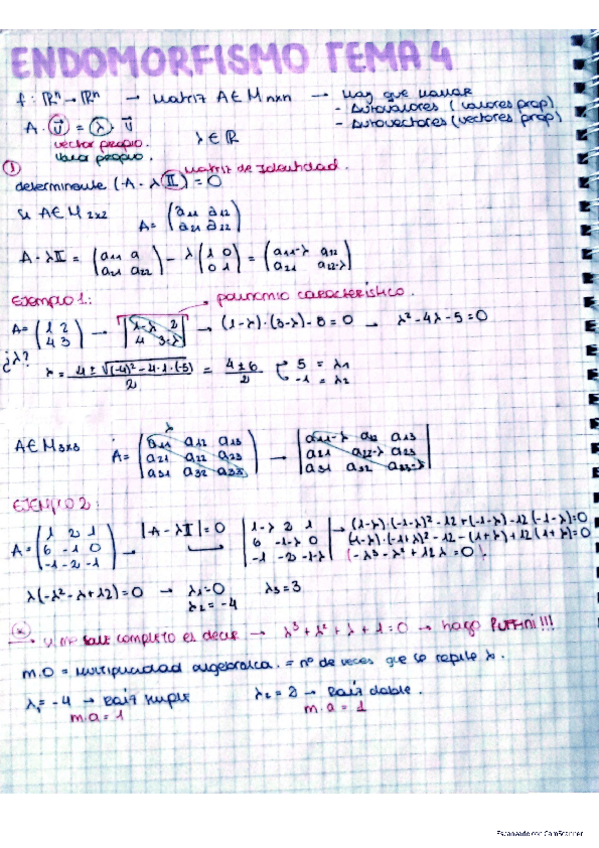 ENDOMORFISMO TEMA 4
f: ℝⁿ → ℝⁿ → Matriz A ∈ Mnxn → Hay que hallar
- Autovalores (valores prop)
- Autovectores (vectores prop)
A · u⃗ = λ · u⃗
vector propio.
valor propio.
λ ∈ ℝ
① Matriz de Identidad.
determinante (A - λ II) = 0
Si A ∈ M 2x2 A = (a11 a12 / a21 a22)
A - λ II = (a11 a / a21 a22) - λ (1 0 / 0 1) = (a11-λ a12 / a21 a22-λ)
Ejemplo 1: polinomio característico.
A = (1 2 / 4 3) → |1-λ 2 / 4 3-λ| → (1-λ)·(3-λ) - 8 = 0 → λ² - 4λ - 5 = 0
¿λ?
λ = 4 ± √(-4)² - 4·1·(-5) / 2 = 4 ± 6 / 2 5 = λ1
-1 = λ2
A ∈ M3x3 A = (a11 a12 a13 / a21 a22 a23 / a31 a32 a33) → |a11-λ a12 a13 / a21 a22-λ a23 / a31 a32 a33-λ|
EJEMPLO 2:
A = (1 2 1 / 6 -1 0 / -1 -2 -1) → |A - λ II| = 0 |1-λ 2 1 / 6 -1-λ 0 / -1 -2 -1-λ| → (1-λ)·(-1-λ)² - 12 + (-1-λ) - 12(-1-λ) = 0
(1-λ)·(-1+λ)² - 12 - (1+λ) + 12(1+λ) = 0
(-λ³ - λ² + 12λ = 0)
λ(-λ² - λ + 12) = 0 → λ1 = 0 λ3 = 3
λ2 = -4
me sale completo es decir → λ³ + λ² + λ + 1 = 0 → hago RUFFINI!!!
m.a = Multiplicidad algebraica. = nº de veces que se repite λ.
λ1 = -4 → Raíz simple λ2 = 2 → Raíz doble.
m.a = 1 m.a = 1
Escaneado con CamScanner